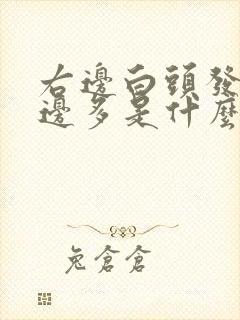 右邊白頭發
邊多是什麼
兔倉倉